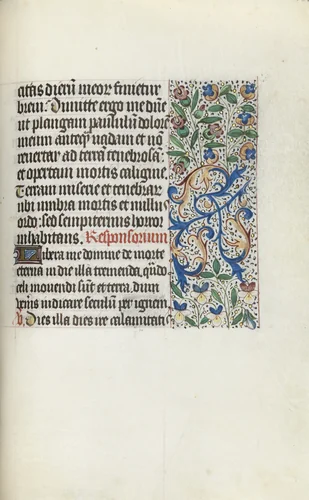 citas dierū meor finietur
breui. Dimitte ergo me dñe
ut plangam paululū dolorē
meum anteq̄ uadam et nō
reuertar ad terrā tenebrosā:
et opertam mortis caligine.
Terram miserie et tenebrar̄
ubi umbra mortis et nullus
ordo: sed sempiternus horror
inhabitans. Responsorium
Libera me domine de morte
eterna in die illa tremenda. qn̄do
celi mouendi sūt et terra. dum
ueneris iudicare seculū per ignem
v̄. Dies illa dies ire calamitati